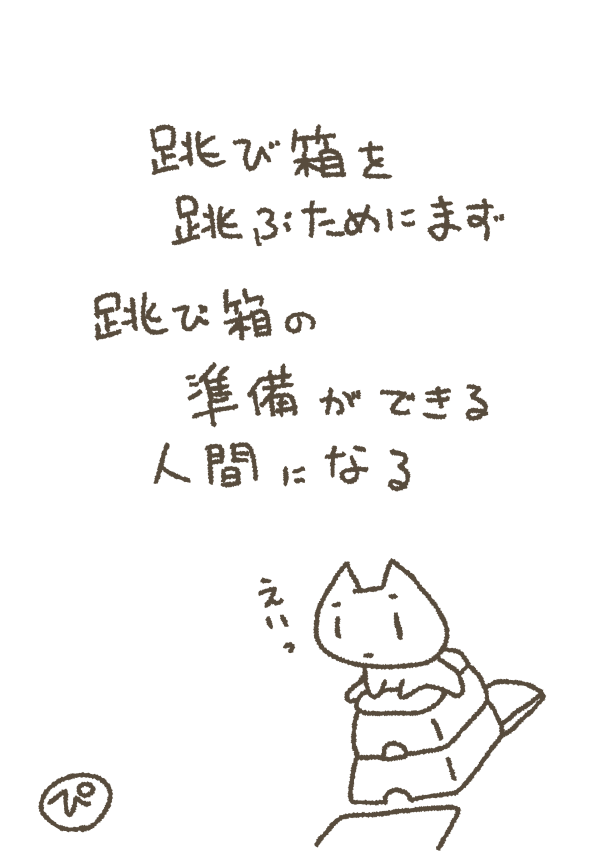 跳び箱を
跳ぶためにまず
跳び箱の
準備ができる
人間になる
えいっ
ぴ